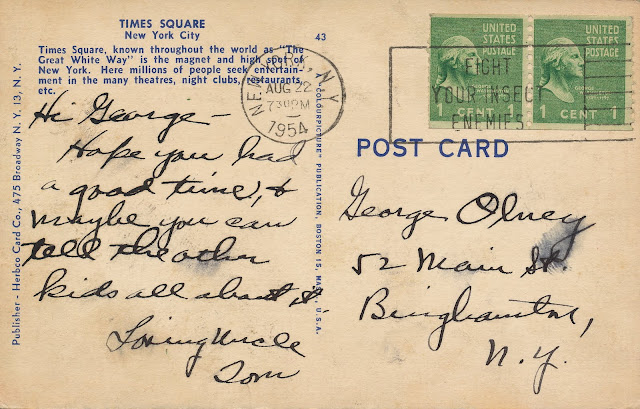 TIMES SQUARE
New York City
Times Square, known throughout the world as "The
Great White Way" is the magnet and high spot of
New York. Here millions of people seek entertain-
ment in the many theatres, night clubs, restaurants,
etc.
Hi George -
Hope you had
a good time, &
maybe you can
tell the other
kids all about it.
Loving Uncle
Tom
Publisher - Herbco Card Co., 475 Broadway N. Y. 13, N. Y.
43
"COLOURPICTURE" PUBLICATION, BOSTON 15, MASS., U.S.A.
NEW YORK, N.Y.
AUG 22
730PM
1954
FIGHT
YOUR INSECT
ENEMIES
UNITED
STATES
POSTAGE
1 CENT 1
UNITED
STATES
POSTAGE
1 CENT 1
POST CARD
George Olney
52 Main St.
Binghamton,
N.Y.